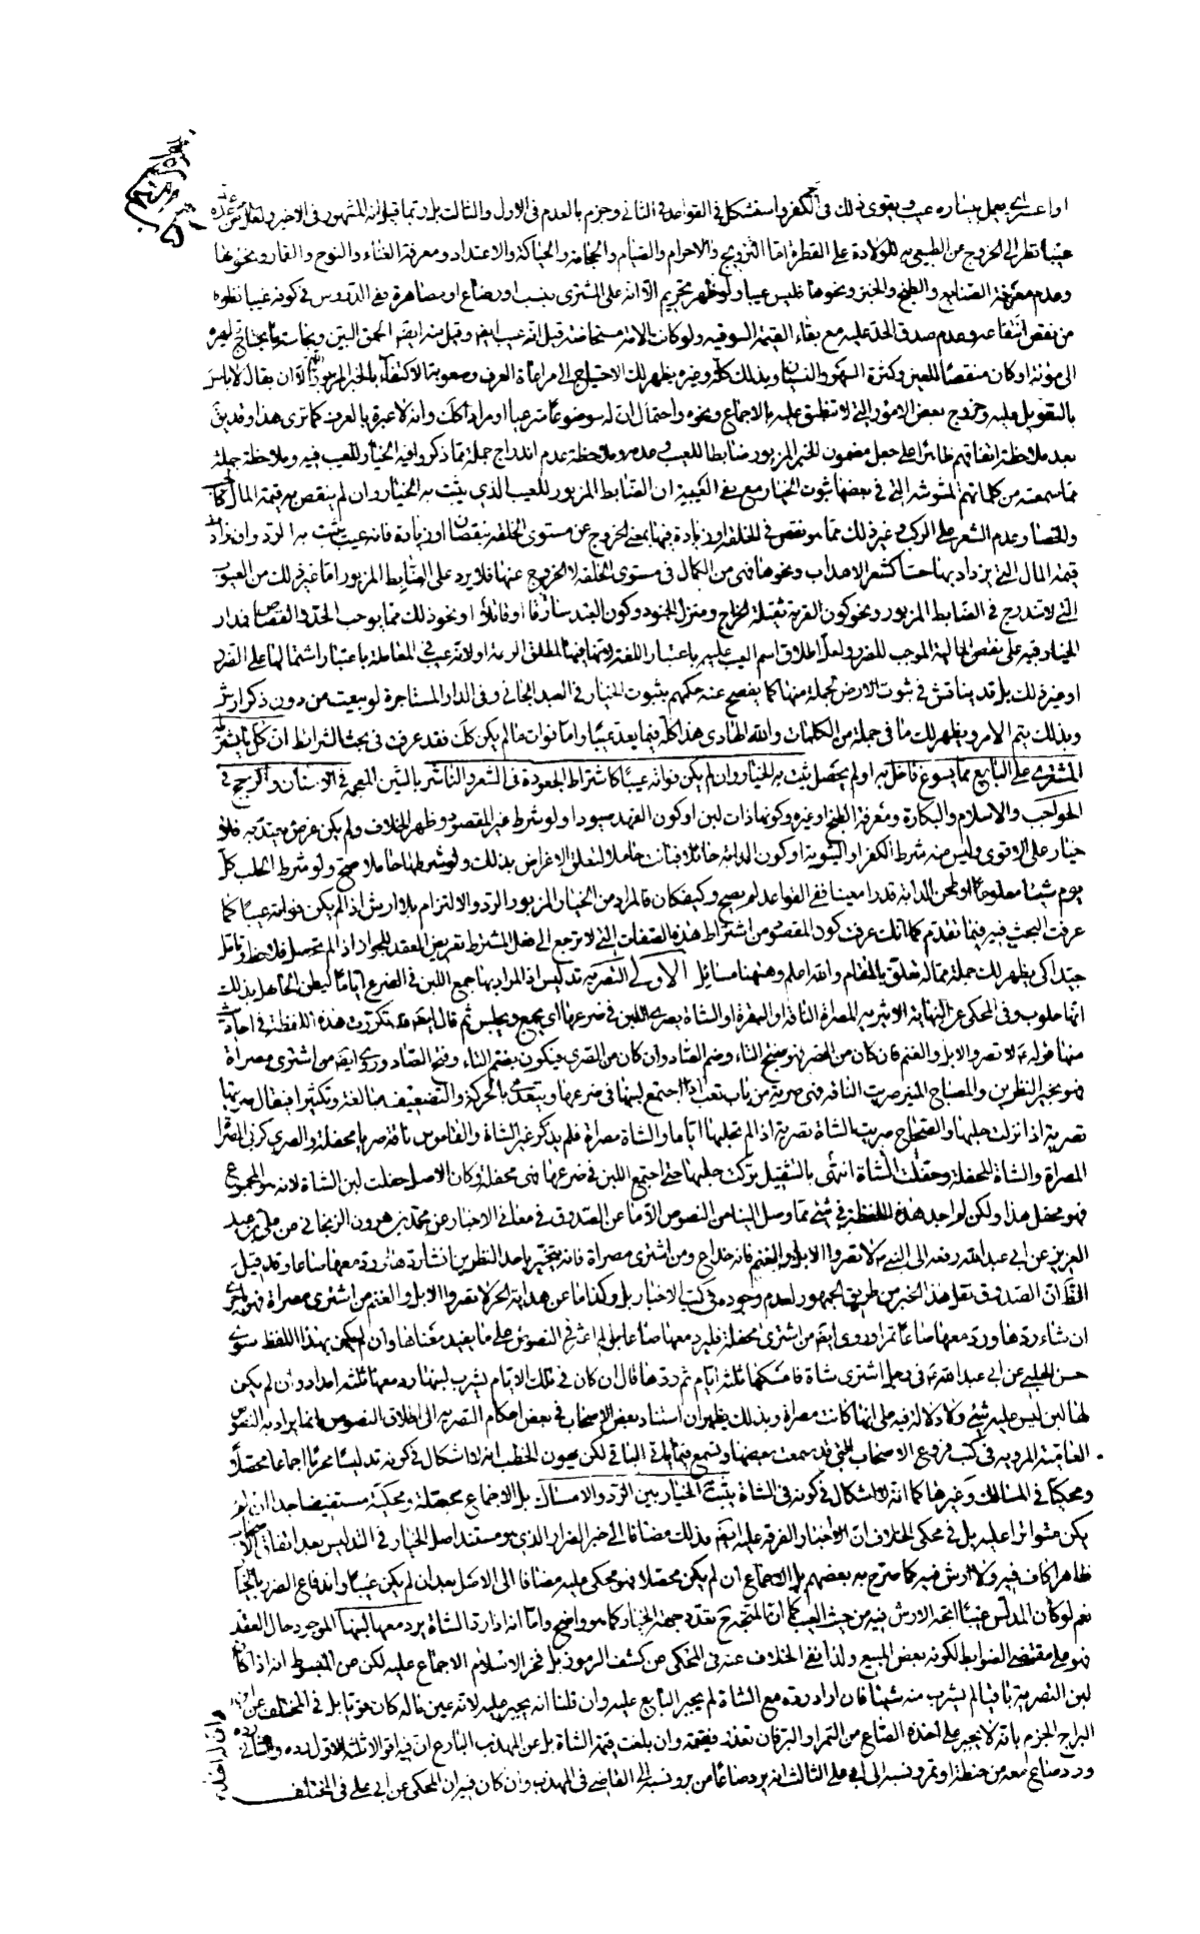 او اعسر اي يعمل بيساره عيب ويقوى ذلك في الكفر واستشكل في القواعد في الثاني وجزم بالعدم في الاول والثالث بل ربما قيل انه المشهور في الاخير ولعل من عده
عيبا نظر الى الخروج عن الطبيعي للولادة على الفطرة اما التزويج والاحرام والصيام والحجامة والحياكة والاعتداد ومعرفة الغناء والنوح والقمار ونحوها
وعدم معرفة الصنايع والطبخ والخبز ونحوها فليس عيبا ولو ظهر تحريم الامة على المشتري بنسب او رضاع او مصاهرة ففي الدروس في كونه عيبا نظر
من نقص انتفاعه وعدم صدق الحد عليه مع بقاء القيمة السوقية ولو كانت الامة مستحاضة قيل انه عيب ايضا وقيل منه ايضا الحمق البين ونجاسة ما يحتاج تطهيره
الى مؤنة او كان منقصا للعين وكثرة السهو والنسيان وبذلك كله وغيره يظهر لك الاحتياج الى مراعاة العرف وصعوبة الاكتفاء بالخبر المزبور اللهم الا ان يقال لا باس
بالتعويل عليه وخروج بعض الامور التي لا تنطبق عليه بالاجماع ونحوه واحتمال ان له موضوعا شرعيا او مرادا كك وانه لا عبرة بالعرف كما ترى هذا وقد يق
بعد ملاحظة اتفاقهم ظاهرا على جعل مضمون الخبر المزبور ضابطا للعيب وعدمه وملاحظة عدم اندراج جملة مما ذكروا فيه الخيار للعيب فيه وملاحظة جملة
مما سمعته من كلماتهم المشوشة التي في بعضها ثبوت الخيار مع نفي العيبية ان الضابط المزبور للعيب الذي يثبت به الخيار وان لم ينقص به قيمة المال كما
والخصاء وعدم الشعر على الركب وغير ذلك مما هو نقص في الخلقة او زيادة فيها بمعنى الخروج عن مستوى الخلقة بنقصان او زيادة فانه عيب يثبت به الرد وان زاد
قيمة المال التي يزداد بها حسنا كشعر الاهداب ونحوها فهي من الكمال في مستوى الخلقة لا الخروج عنها فلا يرد على الضابط المزبور اما غير ذلك من العيوب
التي لا تندرج في الضابط المزبور ونحو كون القرية ثقيلة الخراج ومنزل الجنود وكون العبد سارقا او قاتلا او نحو ذلك مما يوجب الحد والقصاص فمدار
الخيار فيه على نقص المالية الموجب للضرر ولعل اطلاق اسم العيب عليه باعتبار اللغة لانها فيها المطلق الردية او لانه عيب في المعاملة باعتبار اشتمالها على الضرر
او غير ذلك بل قد يناقش في ثبوت الارش لجملة منها كما يفصح عنه حكمهم بثبوت الخيار في العبد الجاني وفي الدار المستاجرة لو بيعت من دون ذكر ارش
وبذلك يتم الامر ويظهر لك ما في جملة من الكلمات والله الهادي هذا كله فيما يعد عيبا واما فوات ما لم يكن كك فقد عرفت في بحث الشرائط ان كل ما يشترطه
المشتري على البايع مما يسوغ فاخل به او لم يحصل يثبت به الخيار وان لم يكن فواته عيبا كاشتراط الجعودة في الشعر والتاشير بالشين المعجمة في الاسنان والزجج في
الحواجب والاسلام والبكارة ومعرفة الطبخ او غيره وكونها ذات لبن او كون الفهد صيودا ولو شرط غير المقصود وظهر الخلاف ولم يكن غرض يعتد به فلا
خيار على الاقوى وليس منه شرط الكفر او الثيبوبة او كون الدابة حائلا فبانت حاملا لتعلق الاغراض بذلك ولو شرطها حاملا صح ولو شرط الحلب كل
يوم شيئا معلوما او طحن الدابة قدرا معينا ففي القواعد لم يصح وكيف كان فالمراد من الخيار المزبور الرد والالتزام بلا ارش اذ لم يكن فواته عيبا كما
عرفت البحث فيه فيما تقدم كما انك عرفت كون المقصود من اشتراط هذه الصفات التي لا ترجع الى فعل المشترط تعريض العقد للجواز اذا لم تحصل فلاحظ وتامل
جيدا كي يظهر لك جملة مما له تعلق بالمقام والله اعلم وههنا مسائل الاولى التصرية تدليس اذ المراد بها جمع اللبن في الضرع اياما ليظن الجاهل بذلك
انها حلوب وفي المحكي عن النهاية الاثيرية المصراة الناقة او البقرة او الشاة يصرى اللبن في ضرعها اي يجمع ويحبس ثم قال ايضا قد تكررت هذه اللفظة في احاديث
منها قوله ع لا تصروا الابل والغنم فان كان من الصر فهو بفتح التاء وضم الصاد وان كان من الصرى فيكون بضم التاء وفتح الصاد وروى ايضا من اشترى مصراة
فهو بخير النظرين والمصباح المنير صريت الناقة فهي صرية من باب تعب اذا اجتمع لبنها في ضرعها ويتعدى بالحركة والتضعيف مبالغة وتكثيرا فيقال صريتها
تصرية اذا تركت حلبها والصحاح صريت الشاة تصرية اذا لم تحلبها اياما والشاة مصراة فلم يذكر غير الشاة والقاموس ناقة صريا محفلة والصري كربى المصراة
المصراة والشاة المحفلة وحفلت الشاة انتهى بالتثقيل تركت حلبها حتى اجتمع اللبن في ضرعها فهي محفلة وكان الاصل حفلت لبن الشاة لانه هو المجموع
فهو محفل هذا ولكن لم اجد هذه اللفظة في شيء مما وصل الينا من النصوص الا ما عن الصدوق في معاني الاخبار عن محمد بن هرون الزنجاني عن علي بن عبد
العزيز عن ابي عبد الله رفعه الى النبي ص لا تصروا الابل والغنم فانه خداع ومن اشترى مصراة فانه يتخير باحد النظرين ان شاء ردها ورد معها صاعا وقد قيل
الظ ان الصدوق نقل هذا الخبر من طريق الجمهور لعدم وجوده في كتب الاخبار بل وكذا ما عن هداية الحر لا تصروا الابل والغنم من اشترى مصراة فهو باخر
ان شاء ردها ورد معها صاعا تمرا وروى ايضا من اشترى محفلة فليرد معها صاعا بل لم اعثر في النصوص على ما يفيد معناها وان لم يكن بهذا اللفظ سوى
حسن الحلبي عن ابي عبد الله ع في رجل اشترى شاة فامسكها ثلثة ايام ثم ردها قال ان كان في تلك الايام يشرب لبنها رد معها ثلثة امداد وان لم يكن
لها لبن ليس عليه شيء ولا دلالة فيه على انها كانت مصراة وبذلك يظهر ان استناد بعض الاصحاب في بعض احكام التصرية الى اطلاق النصوص انما يراد به النصوص
العامية المروية في كتب فروع الاصحاب التي قد سمعت بعضها وتسمع فيما ياتي الباقي لكن يهون الخطب انه لا اشكال في كونه تدليسا محرما اجماعا محصلا
ومحكيا في المسالك وغيرها كما انه لا اشكال في كونه في الشاة يثبت الخيار بين الرد والامساك بل الاجماع محصلة ومحكية مستفيضا جدا ان لم
يكن متواترا عليه بل في محكي الخلاف ان الاخبار والفرقة عليه ايضا فذلك مضافا الى خبر الضرار الذي هو مستند اصل الخيار في التدليس بعد اتفاق الاصحاب
ظاهرا كاف فيه ولا ارش فيه كما صرح به بعضهم بل الاجماع ان لم يكن محصلا فهو محكي عليه مضافا الى الاصل بعد ان لم يكن عيبا واندفاع الضرر بالخيار
نعم لو كان المدلس عيبا اتجه الارش فيه من حيث العيب كما ان المتجه ح تعدد جهة الخيار كما هو واضح واما انه اذا رد الشاة يرد معها لبنها الموجود حال العقد
فهو على مقتضى الضوابط لكونه بعض المبيع ولذا نفى الخلاف عنه في المحكي عن كشف الرموز بل فخر الاسلام الاجماع عليه لكن عن المبسوط انه اذا كان
لبن التصرية باقيا لم يشرب منه شيئا فان اراد رده مع الشاة لم يجبر البايع عليه وان قلنا انه يجبر عليه لانه عين ماله كان قويا بل في المختلف عن ابن
البراج الجزم بانه لا يجبر على اخذه الصاع من التمر او البر فان تعذر فقيمته وان بلغت قيمة الشاة بل عن المهذب البارع ان فيه اقوالا ثلثة الاول رده والثاني
ورد صاع معه من حنطة او تمر ونسبه الى ابي علي الثالث انه يرد صاعا من بر ونسبه الى القاضي في المهذب وان كان فيه ان المحكي عن ابي علي في المختلف